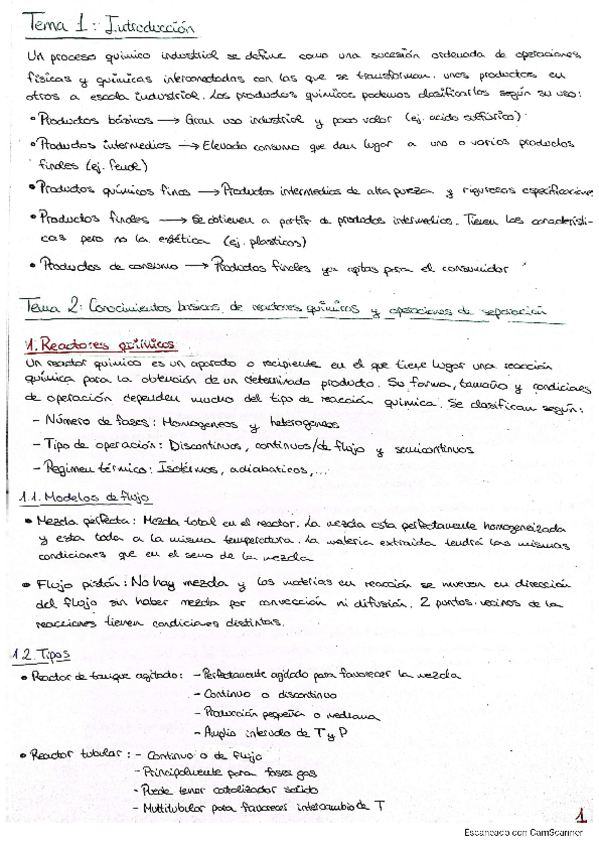 Tema 1: Introducción
Un proceso químico industrial se define como una sucesión ordenada de operaciones
físicas y químicas interconectadas con las que se transforman unos productos en
otros a escala industrial. Los productos químicos podemos clasificarlos según su uso:
• Productos básicos → Gran uso industrial y poco valor (ej. acido sulfúrico)
• Productos intermedios → Elevado consumo que dan lugar a uno o varios productos
finales (ej. fenol)
• Productos químicos finos → Productos intermedios de alta pureza y rigurosas especificaciones
• Productos finales → Se obtienen a partir de productos intermedios. Tienen las característi-
cas pero no la estética (ej. plasticos)
• Productos de consumo → Productos finales ya aptos para el consumidor
Tema 2: Conocimientos basicos de reactores químicos y operaciones de separación
1. Reactores químicos
Un reactor químico es un aparato o recipiente en el que tiene lugar una reacción
química para la obtención de un determinado producto. Su forma, tamaño y condiciones
de operación dependen mucho del tipo de reacción química. Se clasifican según:
- Número de fases: Homogeneos y heterogeneos
- Tipo de operación: Discontinuos, continuos/de flujo y semicontinuos
- Regimen térmico: Isotérmos, adiabaticos,...
1.1. Modelos de flujo
• Mezcla perfecta: Mezcla total en el reactor. La mezcla esta perfectamente homogeneizada
y esta toda a la misma temperatura. La materia extraida tendrá las mismas
condiciones que en el seno de la mezcla
• Flujo pistón: No hay mezcla y las materias en reacción se mueven en dirección
del flujo sin haber mezcla por convección ni difusión. 2 puntos vecinos de la
reacciones tienen condiciones distintas.
1.2. Tipos
• Reactor de tanque agitado: - Perfectamente agitado para favorecer la mezcla
- Continuo o discontinuo
- Producción pequeña o mediana
- Amplio intervalo de T y P
• Reactor tubular: - Continuo o de flujo
- Principalmente para fases gas
- Puede tener catalizador solido
- Multitubular para favorecer intercambio de T
1
Escaneado con CamScanner